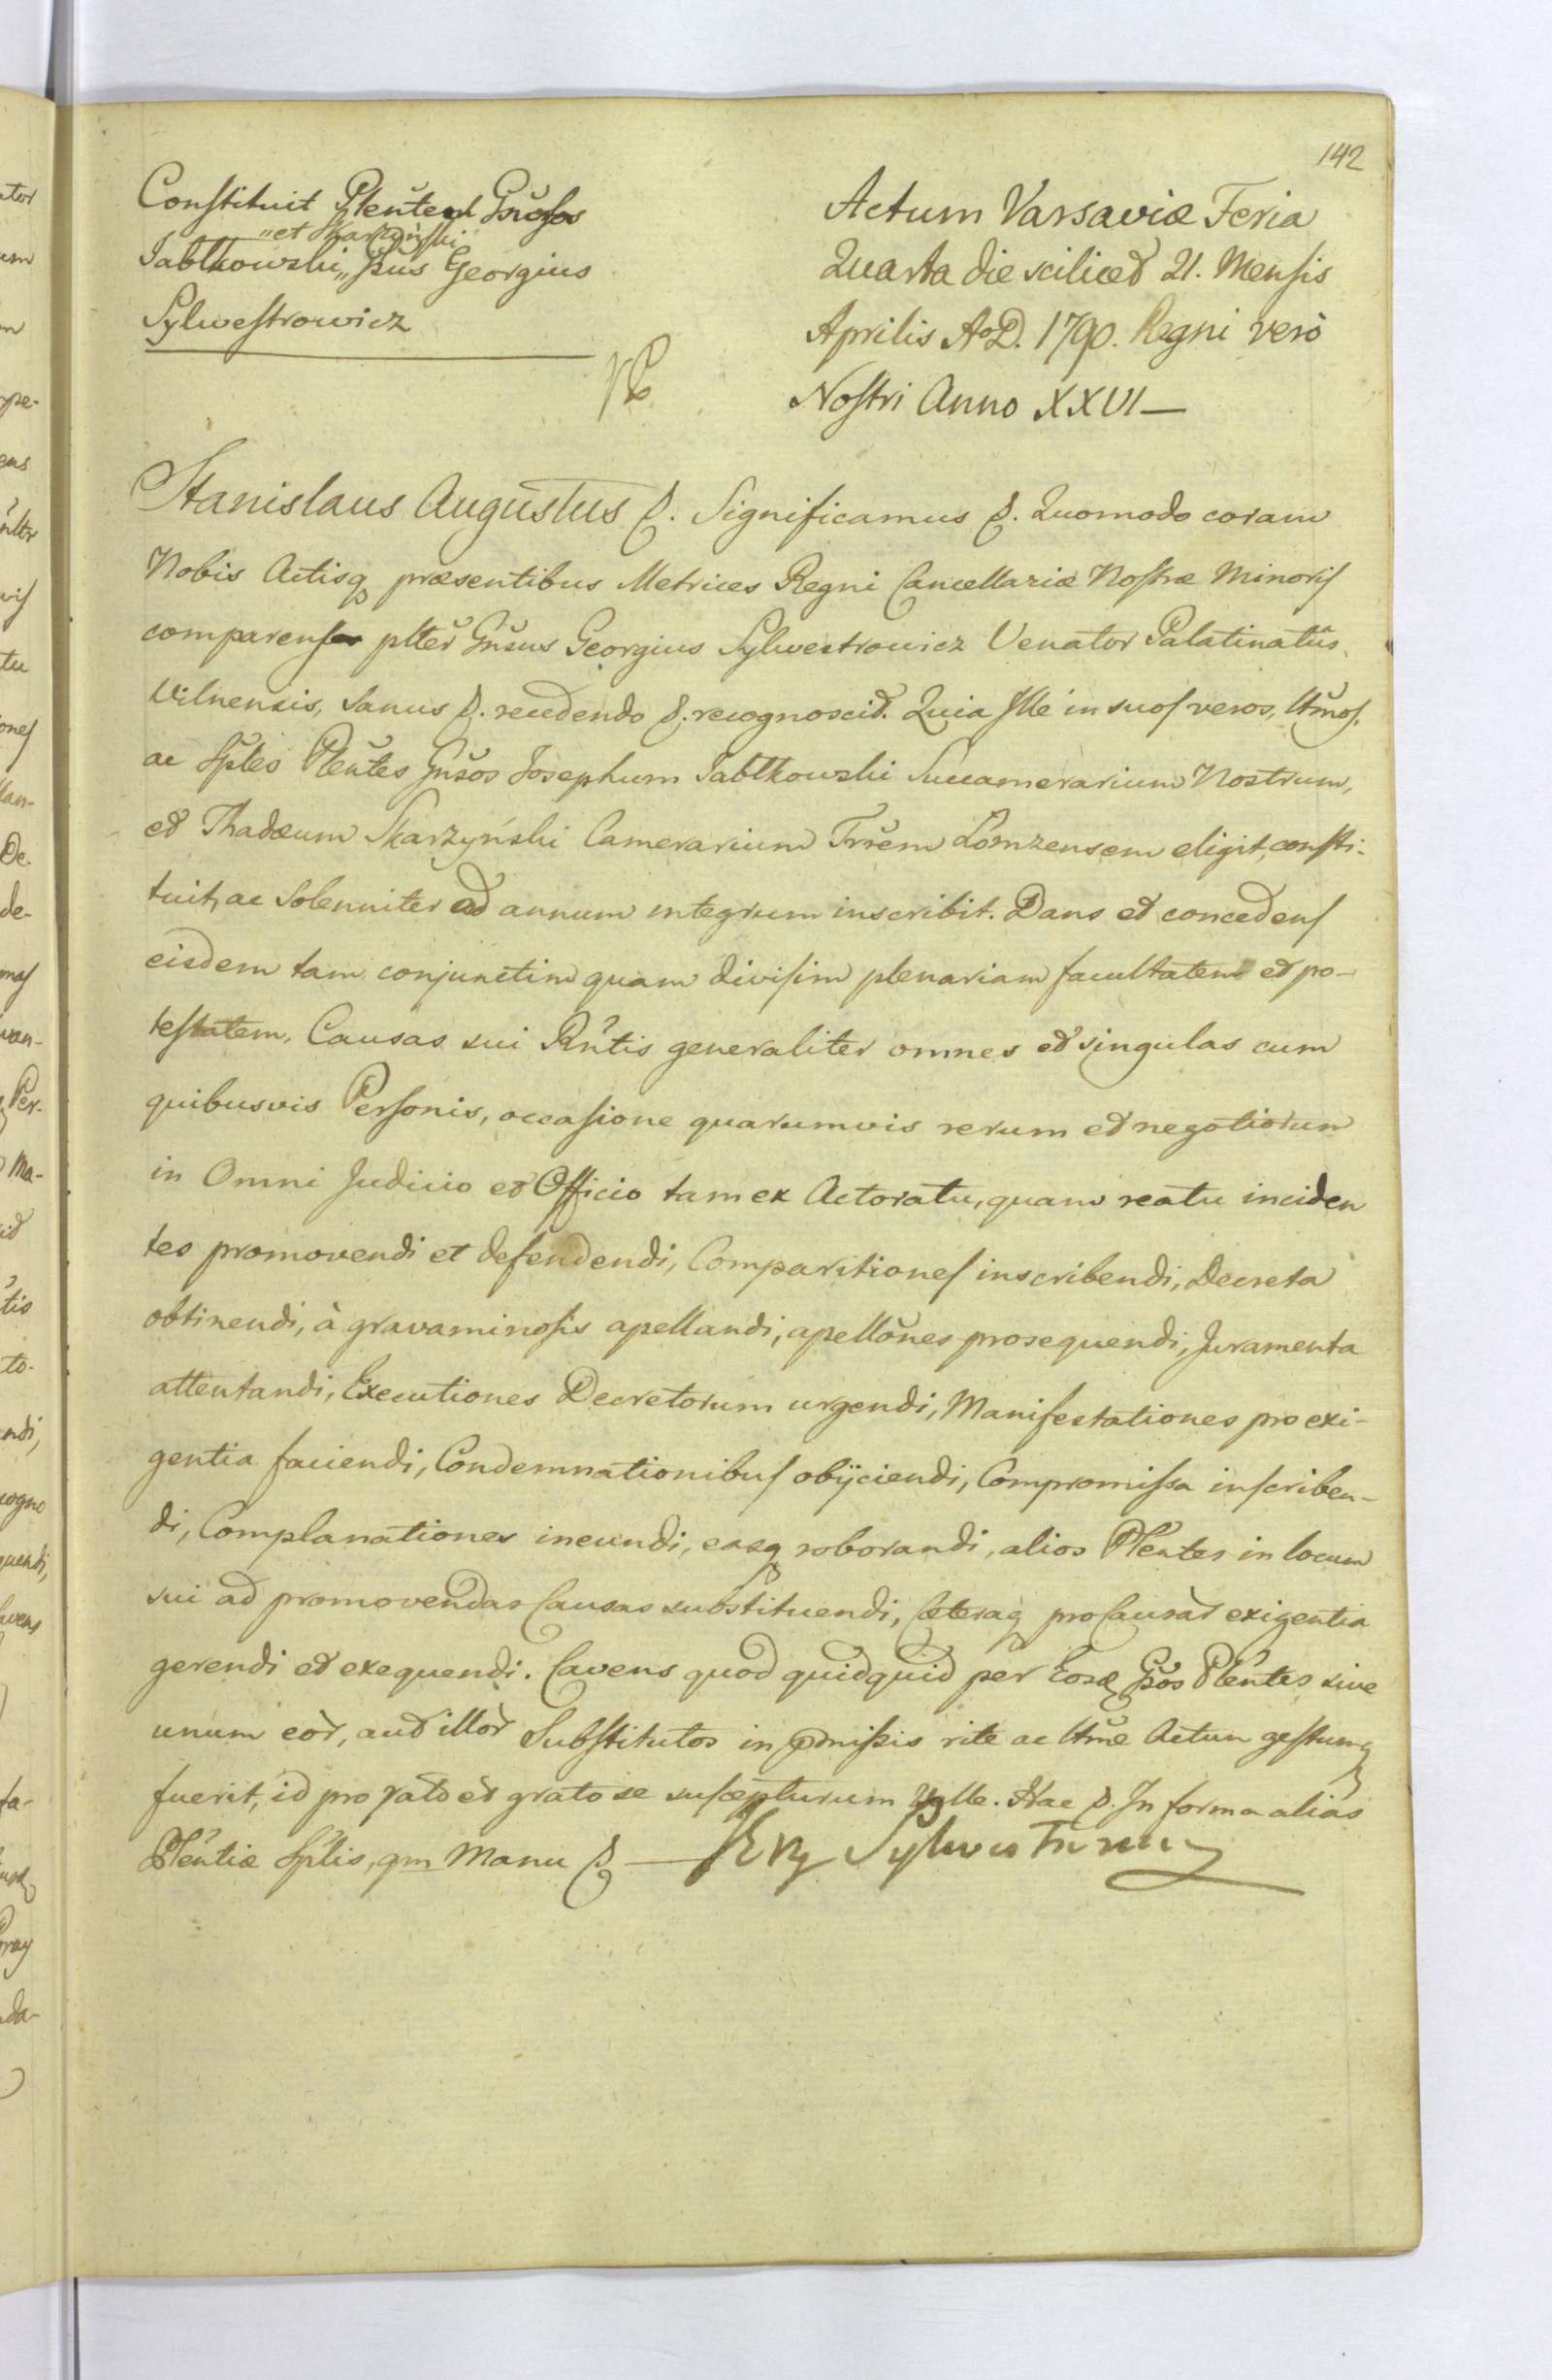 142
Constituit Plentes Gnosos
"et Skarzyński
Jabłkowski,, Gsus Georgius
Sylwestrowicz
Actum Varsaviæ Feria
Quarta die scilicet 21. Mensis
Aprilis AoD. 1790. Regni verò
Nostri Anno XXVI —
Stanislaus Augustus &. Significamus &. Quomodo coram
Nobis Actisq præsentibus Metrices Regni Cancellariæ Nostræ Minoris
comparens pltěr Gnsus Georgius Sylwestrowicz Venator Palatinatûs
Vilnensis, Sanus &. recedendo &. recognoscit. Quia Ille in suos veros, ltmos,
ac Sples Plentes Gnsos Josephum Jabłkowski Succamerarium Nostrum,
et Thadæum Skarzyński Camerarium Trřem Łomzensem eligit, consti-
tuit, ac Solenniter ad annum integrum inscribit. Dans et concedens
eisdem tam conjunctim quam divisim plenariam facultatem et po-
testatem, Causas sui Rntis generaliter omnes et singulas cum
quibusvis Personis, occasione quarumvis rerum et negotiorum
in Omni Judicio et Officio tam ex Actoratu, quam reatu inciden
tes promovendi et defendendi, Comparitiones inscribendi, Decreta
obtinendi, à gravaminosis apellandi, apellŏnes prosequendi, Juramenta
attentandi, Executiones Decretorum urgendi, Manifestationes pro exi-
gentia faciendi, Condemnationibus obijciendi, Compromissa inscriben-
di, Complanationes ineundi, easq roborandi, alios Plentes in locum
sui ad promovendas Causas substituendi, Cæteraq pro Causar exigentia
gerendi et exequendi. Cavens quod quidquid per Eosd Gsos Plentes sive
unum eor, aut illor Substitutos in pmissis rite ac ltme Actum gestumq
fuerit, id pro rato et grato se suscepturum velle. Hac &. In forma aliàs
Plentiæ Splis, qm Manu & —